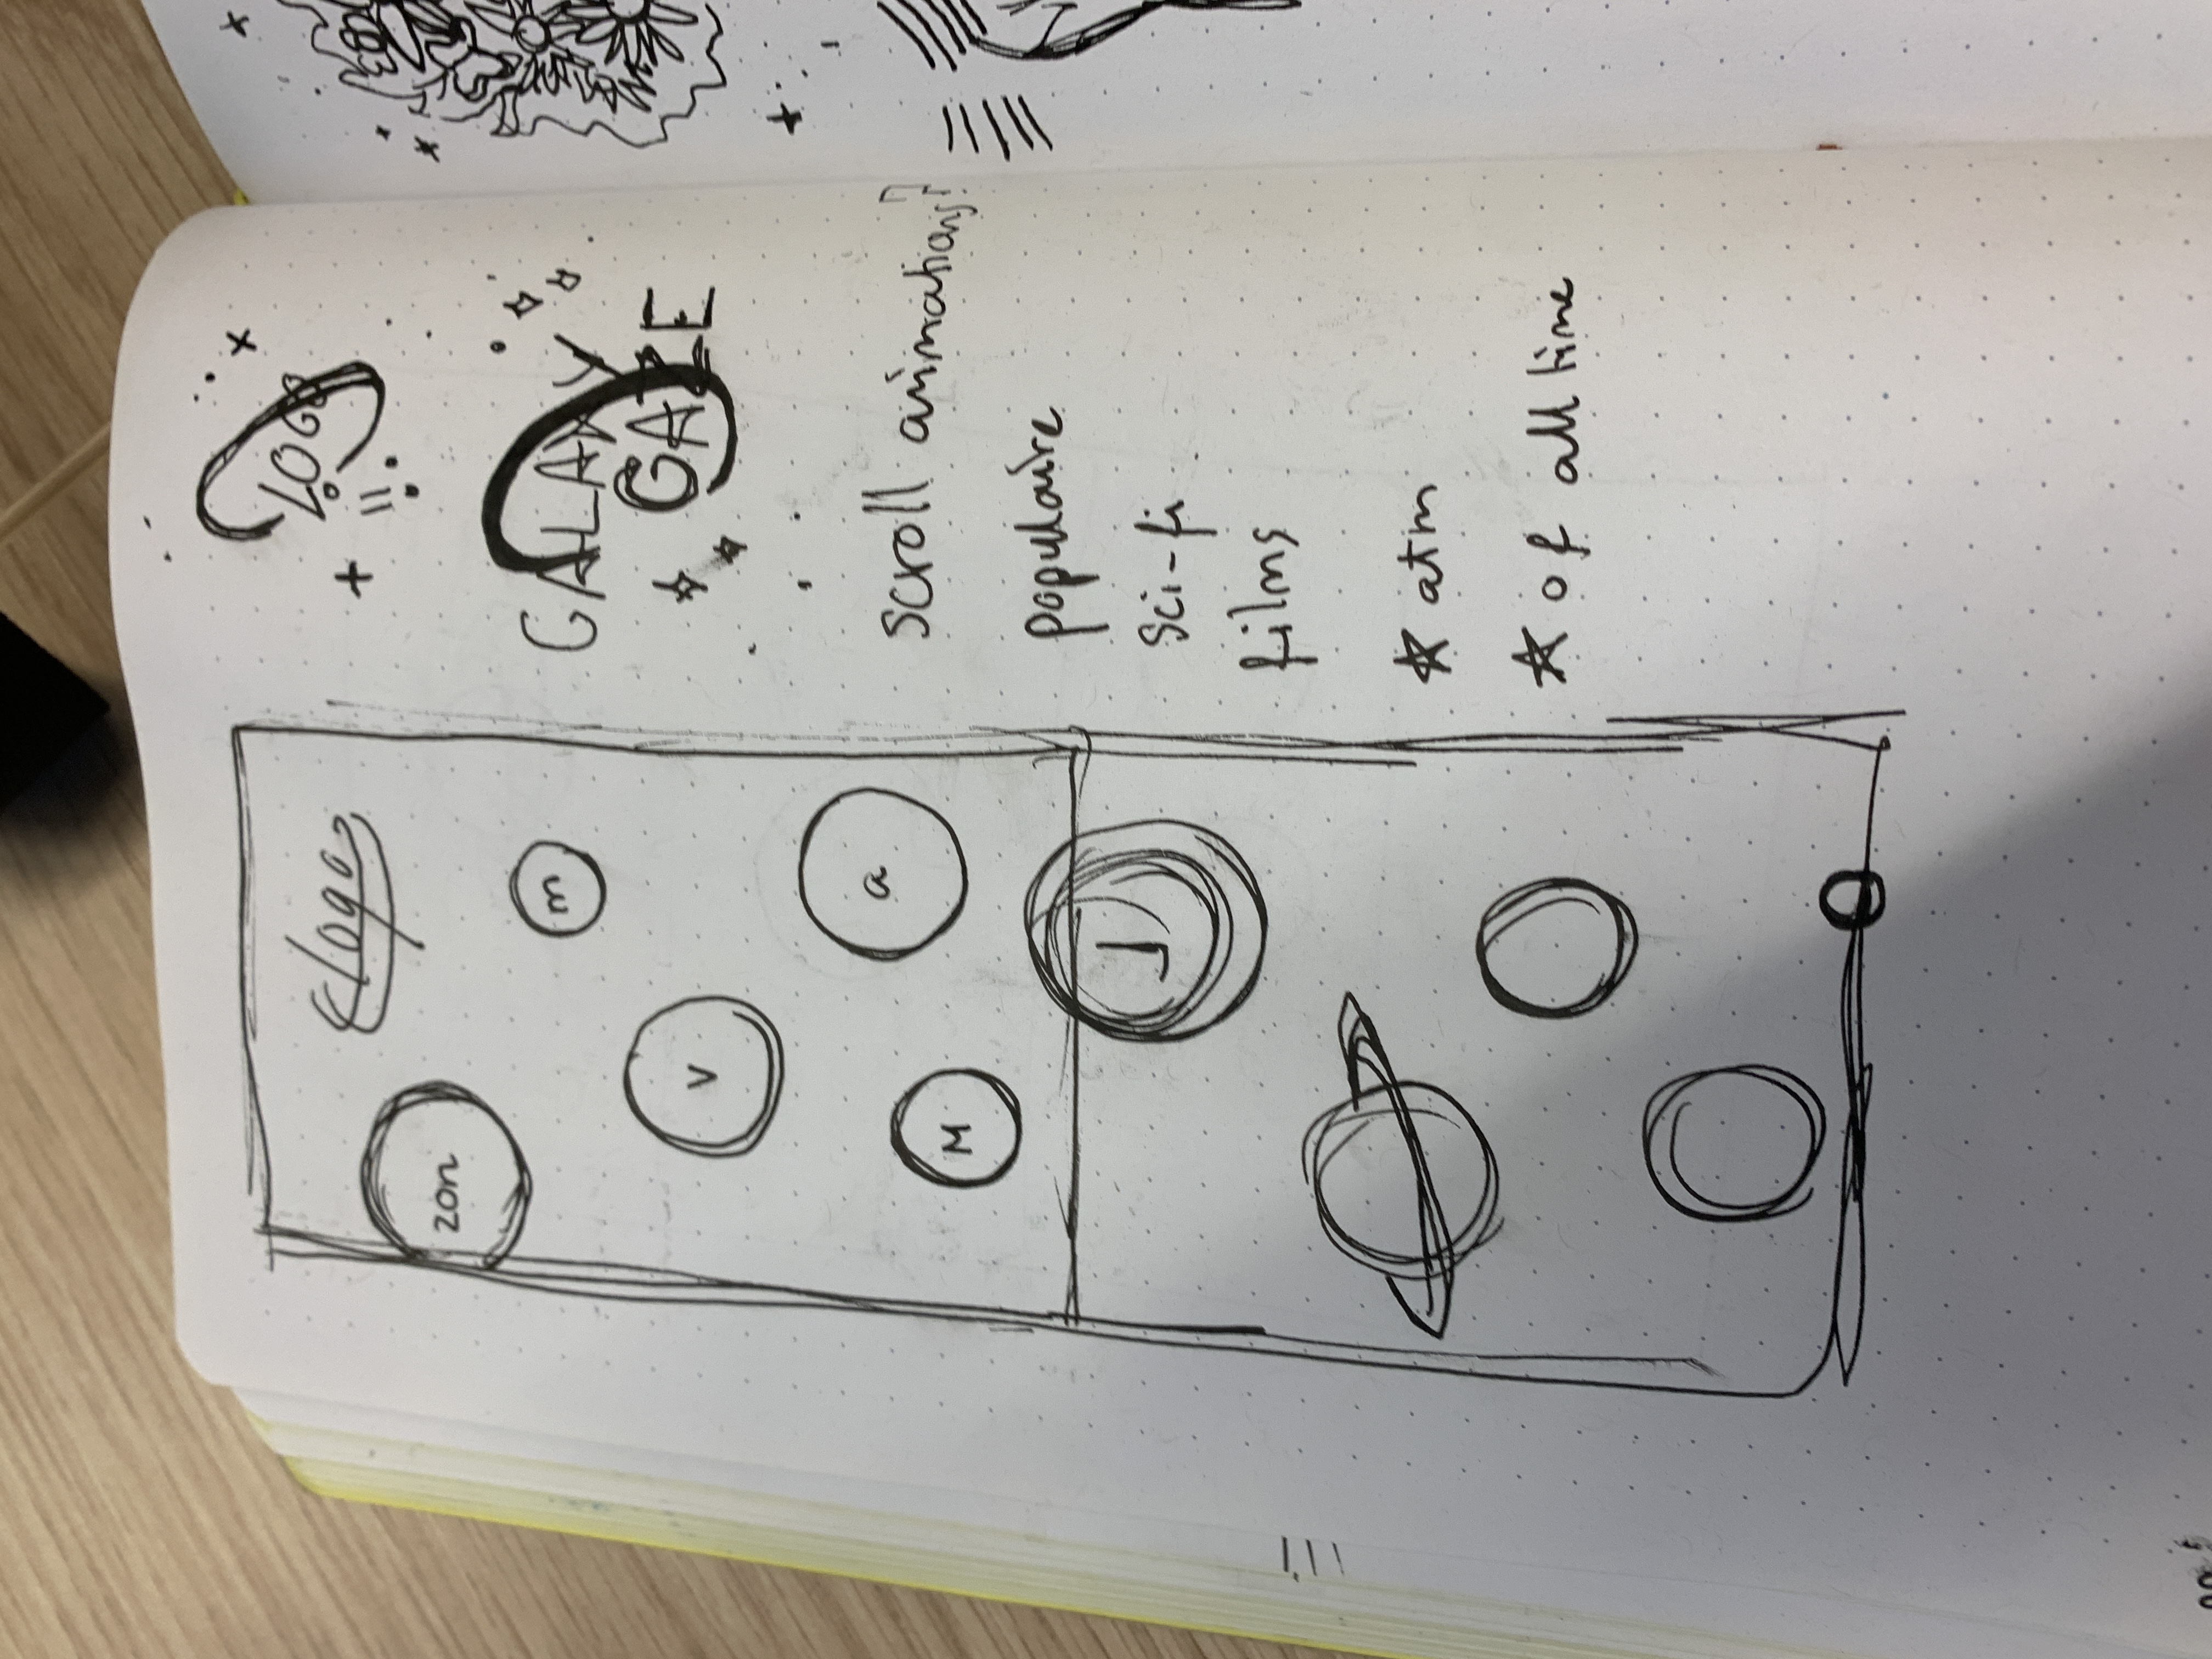 logo
zon
m
V
a
M
J
LOGO
GALAXY
GAZE
scroll animations?
populaire
sci-fi
films
☆ atm
☆ of all time